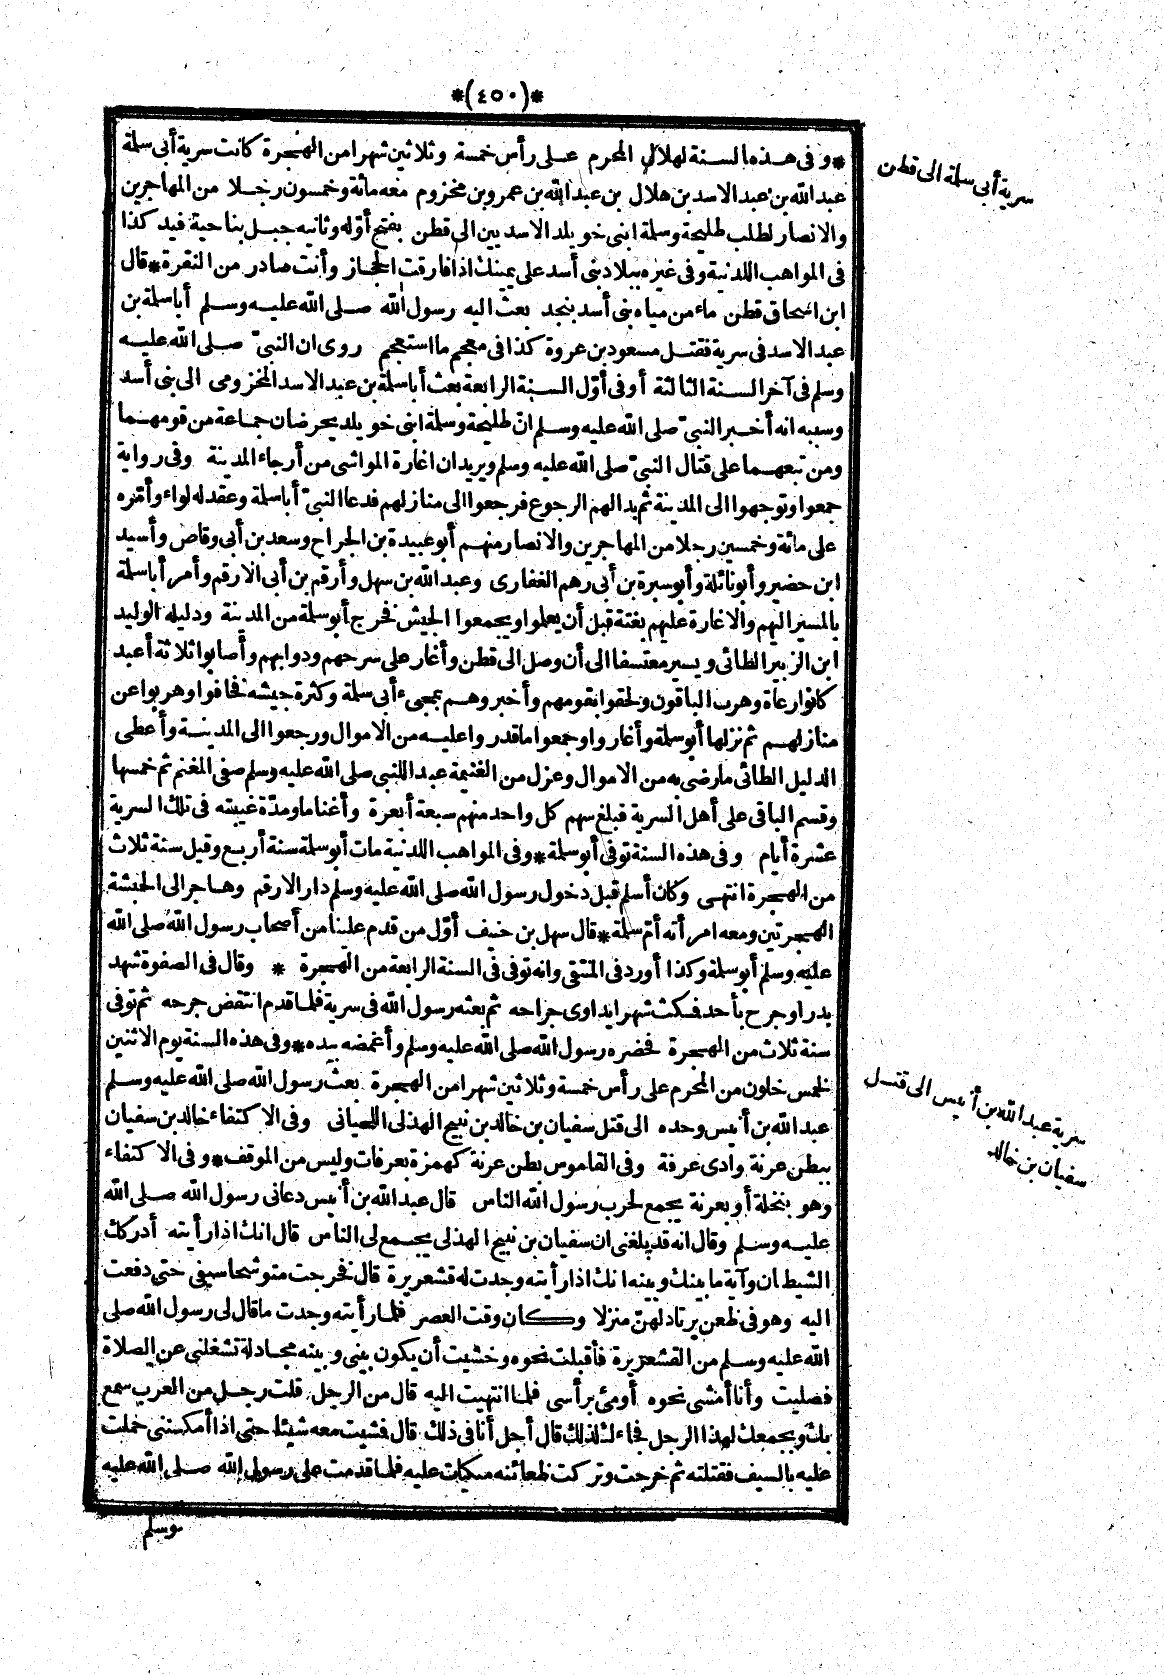 *(٤٥٠)*
*وفى هذه السنة لهلال المحرم على رأس خمسة وثلاثين شهرا من الهجرة كانت سرية أبى سلمة
عبد الله بن عبد الاسد بن هلال بن عبد الله بن عمرو بن مخزوم معه مائة وخمسون رجلا من المهاجرين
والانصار لطلب طليحة وسلمة ابنى خويلد الاسديين الى قطن بفتح أوّله وثانيه جبل بناحية فيد كذا
فى المواهب اللدنية وفى غيره ببلاد بنى أسد على يمينك اذا فارقت الحجاز وأنت صادر من النقرة*قال
ابن اسحاق قطن ماء من مياه بنى أسد بنجد بعث اليه رسول الله صلى الله عليه وسلم أبا سلمة بن
عبد الاسد فى سرية فقتل مسعود بن عروة كذا فى معجم ما استعجم روى ان النبىّ صلى الله عليه
وسلم فى آخر السنة الثالثة أو فى أوّل السنة الرابعة بعث أبا سلمة بن عبد الاسد المخزومى الى بنى أسد
وسببه انه أخبر النبىّ صلى الله عليه وسلم انّ طليحة وسلمة ابنى خويلد يحرضان جماعة من قومهما
ومن تبعهما على قتال النبىّ صلى الله عليه وسلم ويريدان اغارة المواشى من أرجاء المدينة وفى رواية
جمعوا وتوجهوا الى المدينة ثم بدا لهم الرجوع فرجعوا الى منازلهم فدعا النبىّ أبا سلمة وعقد له لواء وأمّره
على مائة وخمسين رجلا من المهاجرين والانصار منهم أبو عبيدة بن الجراح وسعد بن أبى وقاص وأسيد
ابن حضير وأبو نائلة وأبو سبرة بن أبى رهم الغفارى وعبد الله بن سهل وأرقم بن أبى الارقم وأمر أبا سلمة
بالمسير اليهم والاغارة عليهم بغتة قبل أن يعلموا ويجمعوا الجيش فخرج أبو سلمة من المدينة ودليله الوليد
ابن الزبير الطائى ويسير معتسفا الى أن وصل الى قطن وأغار على سرحهم ودوابهم وأصابوا ثلاثة أعبد
كانوا رعاة وهرب الباقون ولحقوا بقومهم وأخبروهم بمجىء أبى سلمة وكثرة جيشه فخافوا وهربوا عن
منازلهم ثم نزلها أبو سلمة وأغاروا وجمعوا ما قدروا عليه من الاموال ورجعوا الى المدينة وأعطى
الدليل الطائى ما رضى به من الاموال وعزل من الغنيمة عبدا للنبى صلى الله عليه وسلم صفى المغنم ثم خمسها
وقسم الباقى على أهل السرية فبلغ سهم كل واحد منهم سبعة أبعرة وأغناما ومدّة غيبته فى تلك السرية
عشرة أيام وفى هذه السنة توفى أبو سلمة*وفى المواهب اللدنية مات أبو سلمة سنة أربع وقيل سنة ثلاث
من الهجرة انتهى وكان أسلم قبل دخول رسول الله صلى الله عليه وسلم دار الارقم وهاجر الى الحبشة
الهجرتين ومعه امرأته أمّ سلمة*قال سهل بن حنيف أوّل من قدم علينا من أصحاب رسول الله صلى الله
عليه وسلم أبو سلمة وكذا أورد فى المنتقى وانه توفى فى السنة الرابعة من الهجرة * وقال فى الصفوة شهد
بدرا وجرح بأحد فمكث شهرا يداوى جراحه ثم بعثه رسول الله فى سرية فلما قدم انتقض جرحه ثم توفى
سنة ثلاث من الهجرة فحضره رسول الله صلى الله عليه وسلم وأغمضه بيده*وفى هذه السنة يوم الاثنين
لخمس خلون من المحرم على رأس خمسة وثلاثين شهرا من الهجرة بعث رسول الله صلى الله عليه وسلم
عبد الله بن أنيس وحده الى قتل سفيان بن خالد بن نبيح الهذلى اللحيانى وفى الاكتفاء خالد بن سفيان
ببطن عرنة وادى عرفة وفى القاموس بطن عرنة كهمزة بعرفات وليس من الموقف*وفى الاكتفاء
وهو بنخلة أو بعرنة يجمع لحرب رسول الله الناس قال عبد الله بن أنيس دعانى رسول الله صلى الله
عليه وسلم وقال انه قد بلغنى ان سفيان بن نبيح الهذلى يجمع لى الناس قال انك اذا رأيته أدركك
الشيطان وآية ما بينك وبينه انك اذا رأيته وجدت له قشعريرة قال فخرجت متوشحا سيفى حتى دفعت
اليه وهو فى ظعن يرتاد لهنّ منزلا وكان وقت العصر فلما رأيته وجدت ما قال لى رسول الله صلى
الله عليه وسلم من القشعريرة فأقبلت نحوه وخشيت أن يكون بينى وبينه مجادلة تشغلنى عن الصلاة
فصليت وأنا أمشى نحوه أومئ برأسى فلما انتهيت اليه قال من الرجل قلت رجل من العرب سمع
بك وبجمعك لهذا الرجل فجاءك لذلك قال أجل أنا فى ذلك قال فمشيت معه شيئا حتى اذا أمكننى حملت
عليه بالسيف فقتلته ثم خرجت وتركت ظعائنه مكبات عليه فلما قدمت على رسول الله صلى الله عليه
وسلم
سرية أبى سلمة الى قطن
سرية عبد الله بن أنيس الى قتل
سفيان بن خالد